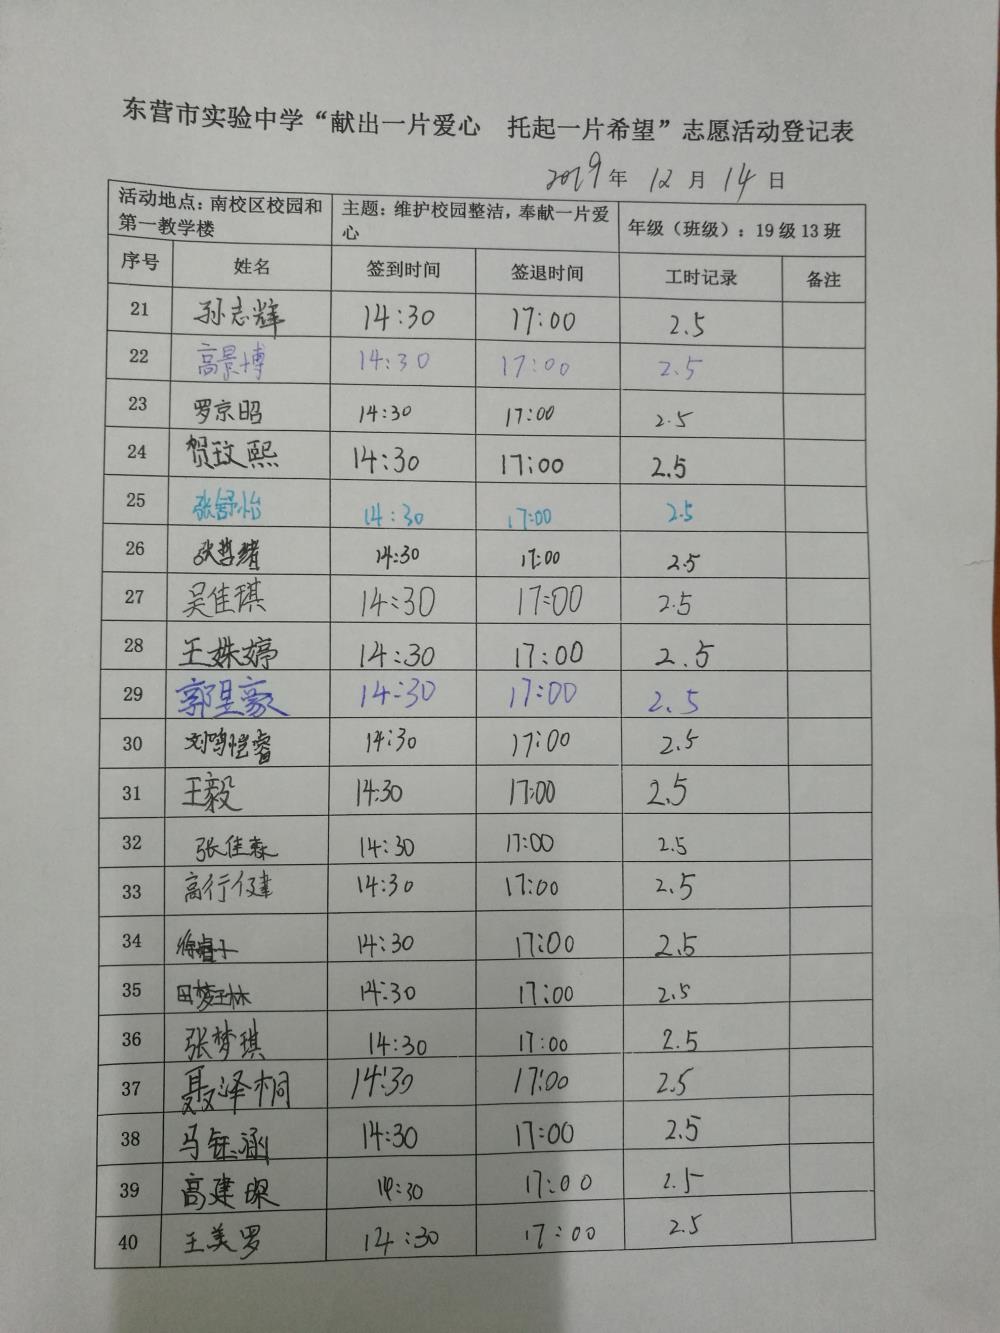 东营市实验中学“献出一片爱心 托起一片希望”志愿活动登记表
2019年 12月 14日
活动地点：南校区校园和第一教学楼 主题：维护校园整洁，奉献一片爱心 年级（班级）：19级13班
序号 姓名 签到时间 签退时间 工时记录 备注
21 孙志辉 14:30 17:00 2.5
22 高景博 14:30 17:00 2.5
23 罗京昭 14:30 17:00 2.5
24 贺玟熙 14:30 17:00 2.5
25 张舒怡 14:30 17:00 2.5
26 张哲绪 14:30 17:00 2.5
27 吴佳琪 14:30 17:00 2.5
28 王姝婷 14:30 17:00 2.5
29 郭昱豪 14:30 17:00 2.5
30 刘鸣恺睿 14:30 17:00 2.5
31 王毅 14:30 17:00 2.5
32 张佳森 14:30 17:00 2.5
33 高行健 14:30 17:00 2.5
34 14:30 17:00 2.5
35 田梦林 14:30 17:00 2.5
36 张梦琪 14:30 17:00 2.5
37 聂泽桐 14:30 17:00 2.5
38 马钰涵 14:30 17:00 2.5
39 高建琛 14:30 17:00 2.5
40 王美罗 14:30 17:00 2.5